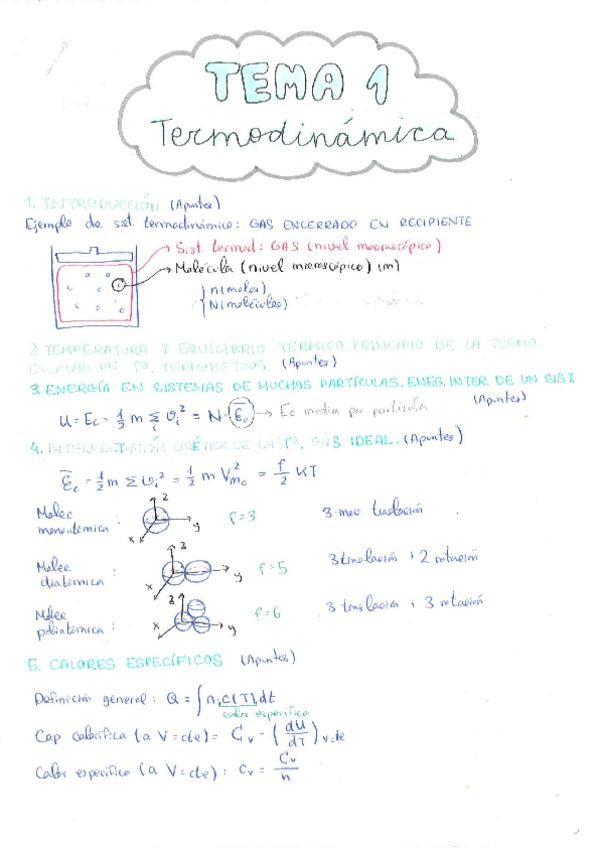 TEMA 1
Termodinámica
1. INTRODUCCIÓN (Apuntes)
Ejemplo de sist. termodinámico: GAS ENCERRADO EN RECIPIENTE
Sist. termod: GAS (nivel macroscópico)
Molécula (nivel microscópico) (m)
n (moles)
N (moléculas)
2 TEMPERATURA Y EQUILIBRIO TERMICO. PRINCIPIO DE LA TERMO.
ESCALAS DE Tª, TERMOMETROS (Apuntes)
3. ENERGÍA EN SISTEMAS DE MUCHAS PARTÍCULAS. ENEG. INTER. DE UN SIST.
(Apuntes)
U = Ec = 1/2 m Σ_i v_i² = N · Ē_c → Ec media por partícula
4. INTERPRETACIÓN CINÉTICA DE LA Tª, GAS IDEAL. (Apuntes)
Ē_c = 1/2 m Σ v_i² = 1/2 m V_mc² = f/2 KT
Molec monoatómica : z y x f=3 3 mov traslación
Molec diatómica : z y x f=5 3 traslación + 2 rotación
Molec poliatómica : z y x f=6 3 traslación + 3 rotación
5. CALORES ESPECÍFICOS (Apuntes)
Definición general: Q = ∫ n c(T) dt
calor específico
Cap calorífica (a V=cte) = C_v = (dU/dT) V=cte
Calor específico (a V=cte): c_v = C_v/n